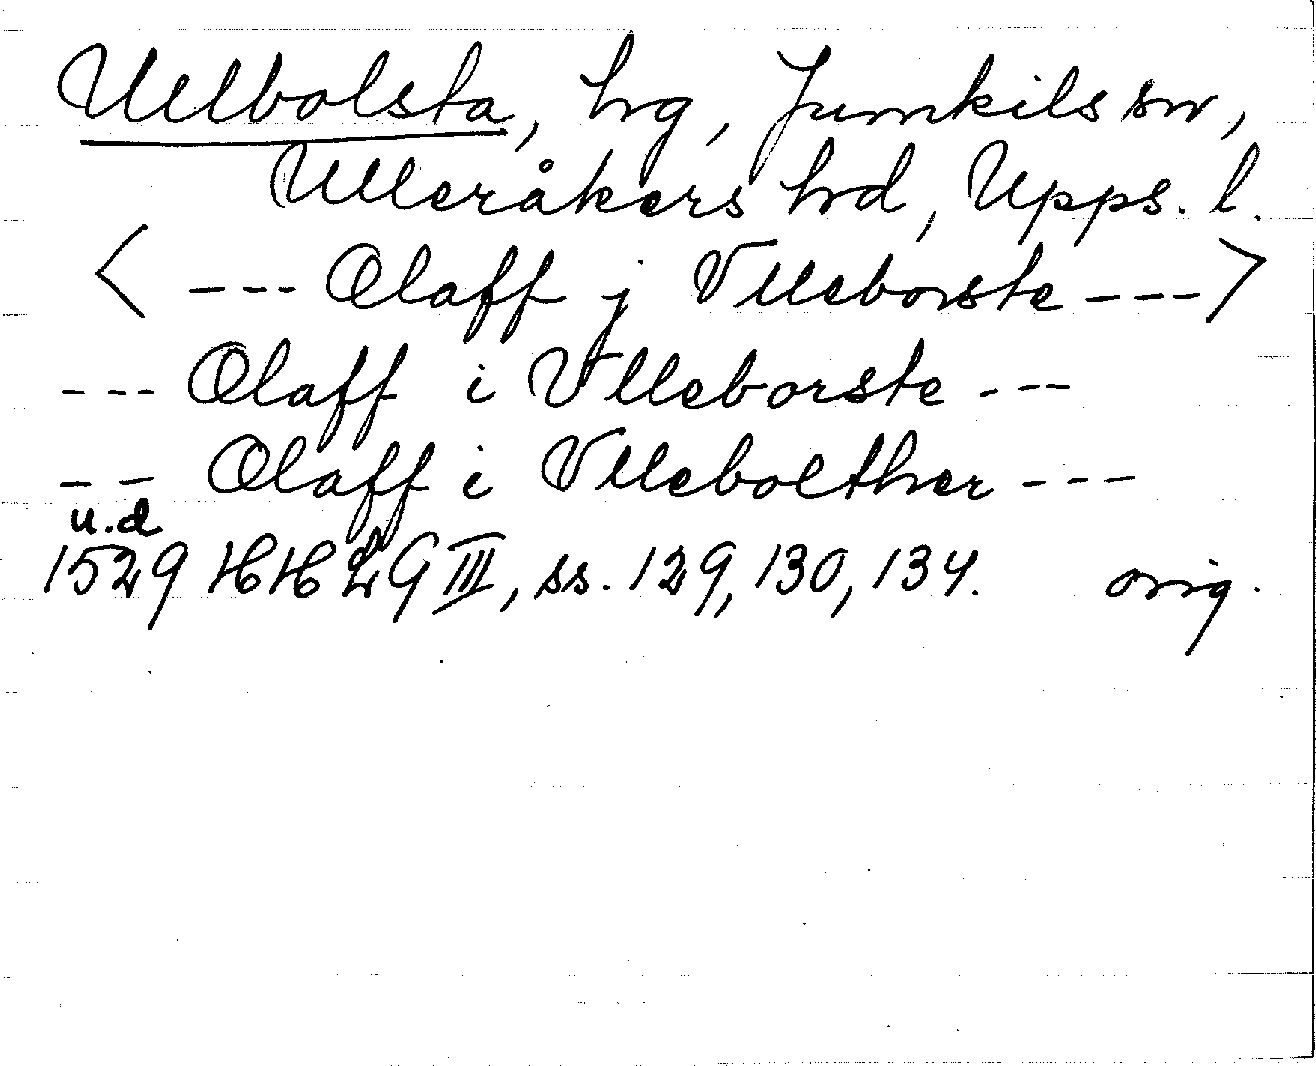 Ullbolsta, hg, Jumkils sn,
Ulleråkers hd, Upps. l.
< --- Olaff j Vlleborste --->
--- Olaff i Vlleborste ---
-- Olaff i Vllebolther ---
u.d
1529 HH LG III, ss. 129, 130, 134. orig.